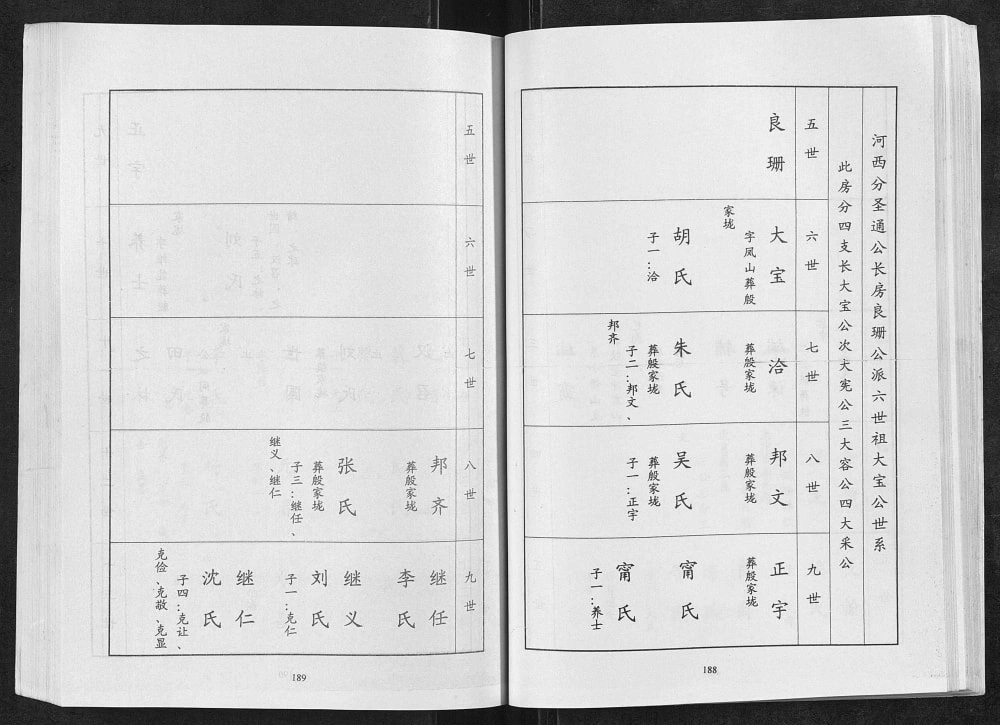 河西分圣通公长房良珊公派六世祖大宝公世系
此房分四支长大宝公次大宪公三大容公四大采公
五世
良珊
六世
大宝
字凤山葬殷
家垅
胡氏
子一:洽
七世
洽
葬殷家垅
朱氏
葬殷家垅
子二:邦文、
邦齐
八世
邦文
葬殷家垅
吴氏
葬殷家垅
子一:正宇
九世
正宇
葬殷家垅
甯氏
甯氏
子一:养士
188
五世
六世
七世
八世
邦齐
葬殷家垅
张氏
葬殷家垅
子三:继任、
继义、继仁
九世
继任
李氏
继义
刘氏
子一:克仁
继仁
沈氏
子四:克让、
克俭、克敬、克显
189